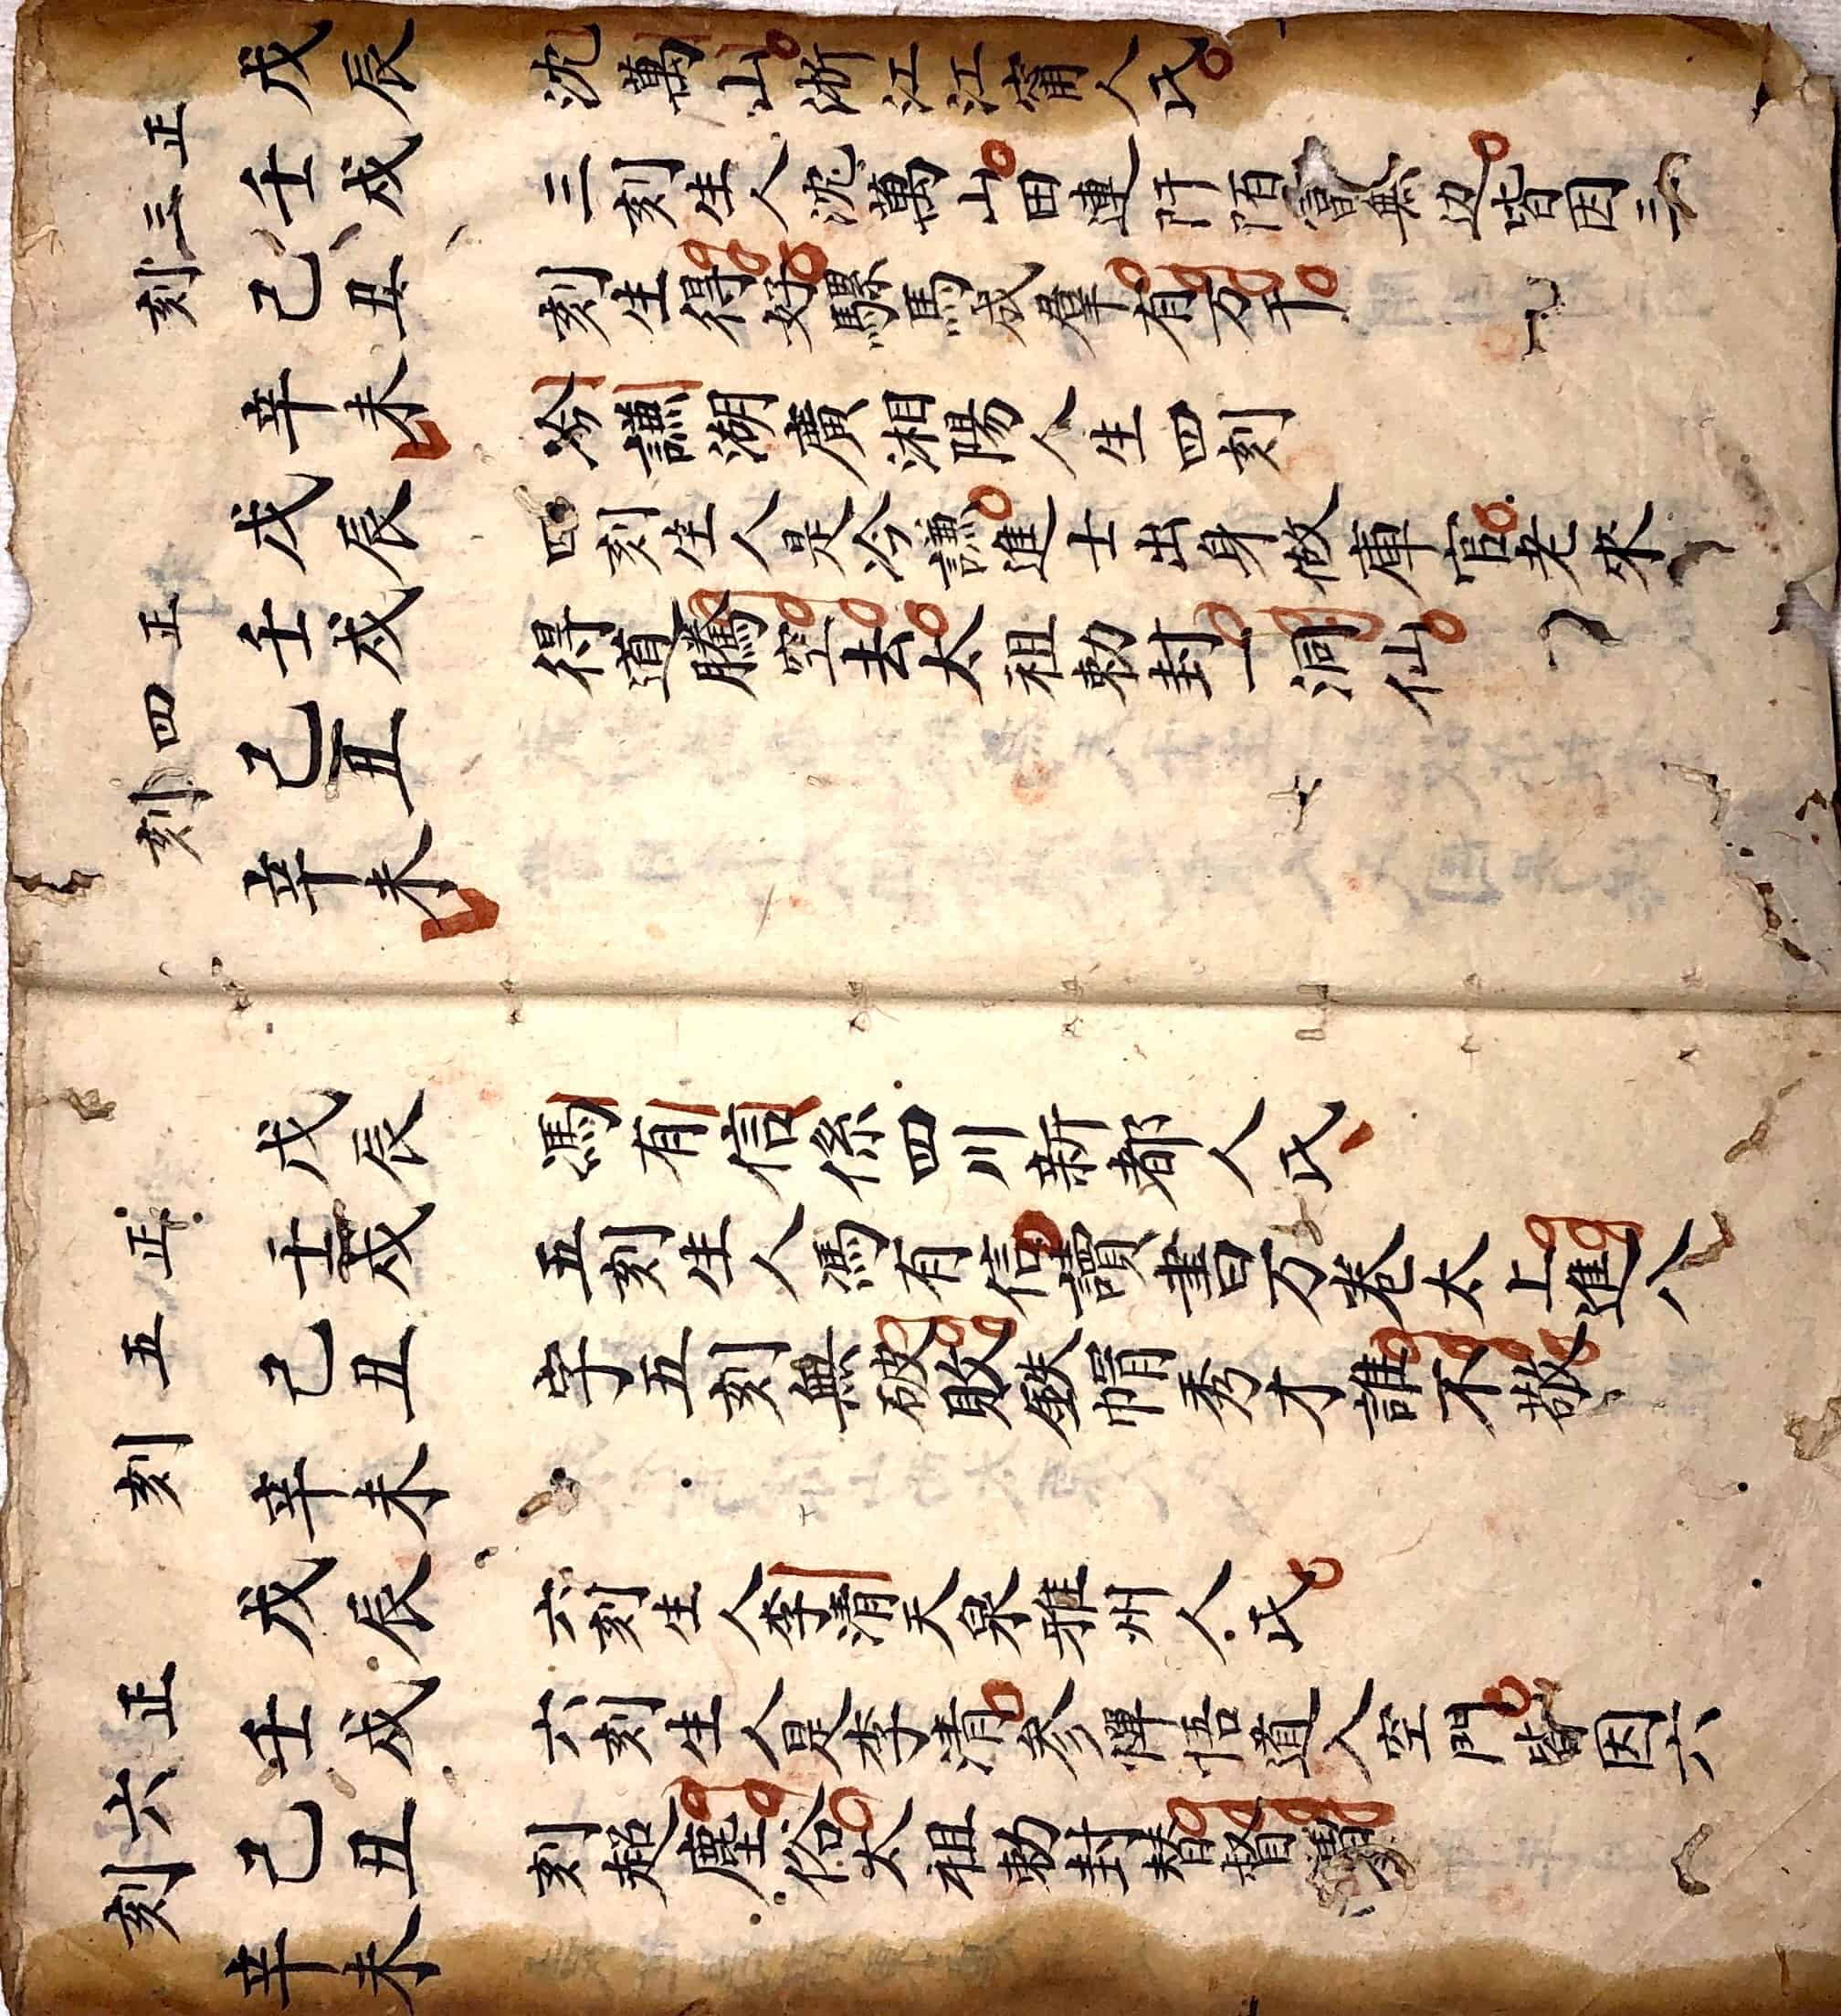 正三刻
戊辰 沈萬山浙江江甯人氏
壬戌 三刻生人沈萬山田連阡陌富無边皆因三
己丑 刻生得好騾馬成羣有万千
辛未 冷謙湖廣湘陽人生四刻
正四刻
戊辰 四刻生人是冷謙進士出身做庫官老來
壬戌 得道騰空去太祖勅封一洞仙
己丑
辛未
正五刻
戊辰 馮有信係四川新都人氏
壬戌 五刻生人馮有信讀書万卷太上進八
己丑 字五刻無破敗鉄帽秀才誰不敬
辛未
正六刻
戊辰 六刻生人李清天泉雅州人氏
壬戌 六刻生人是李清參禪悟道入空門皆因六
己丑 刻超塵俗太祖勅封替督
辛未